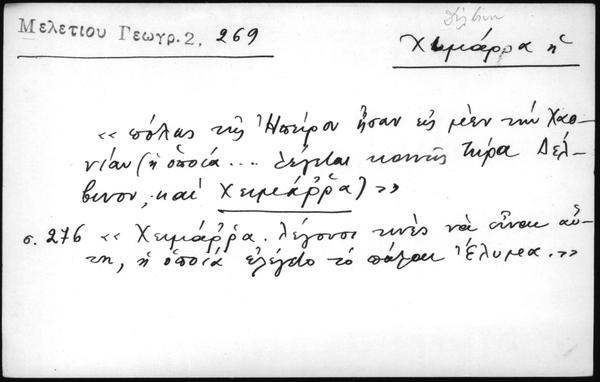 Μελετίου Γεωγρ. 2, 269
Χειμάρρα ἡ
« πόλεις τῆς Ἠπείρου ἦσαν εἰς μὲν τὴν Χαο-
νίαν (ἡ ὁποία .... λέγεται κοινῶς τώρα Δέλ-
βινον, καὶ Χειμάῤῥα) »
σ. 276 « Χειμάῤῥα. λέγουσι τινὲς νὰ εἶναι αὕ-
τη, ἡ ὁποία ἐλέγετο τὸ πάλαι Ἔλυμα. »